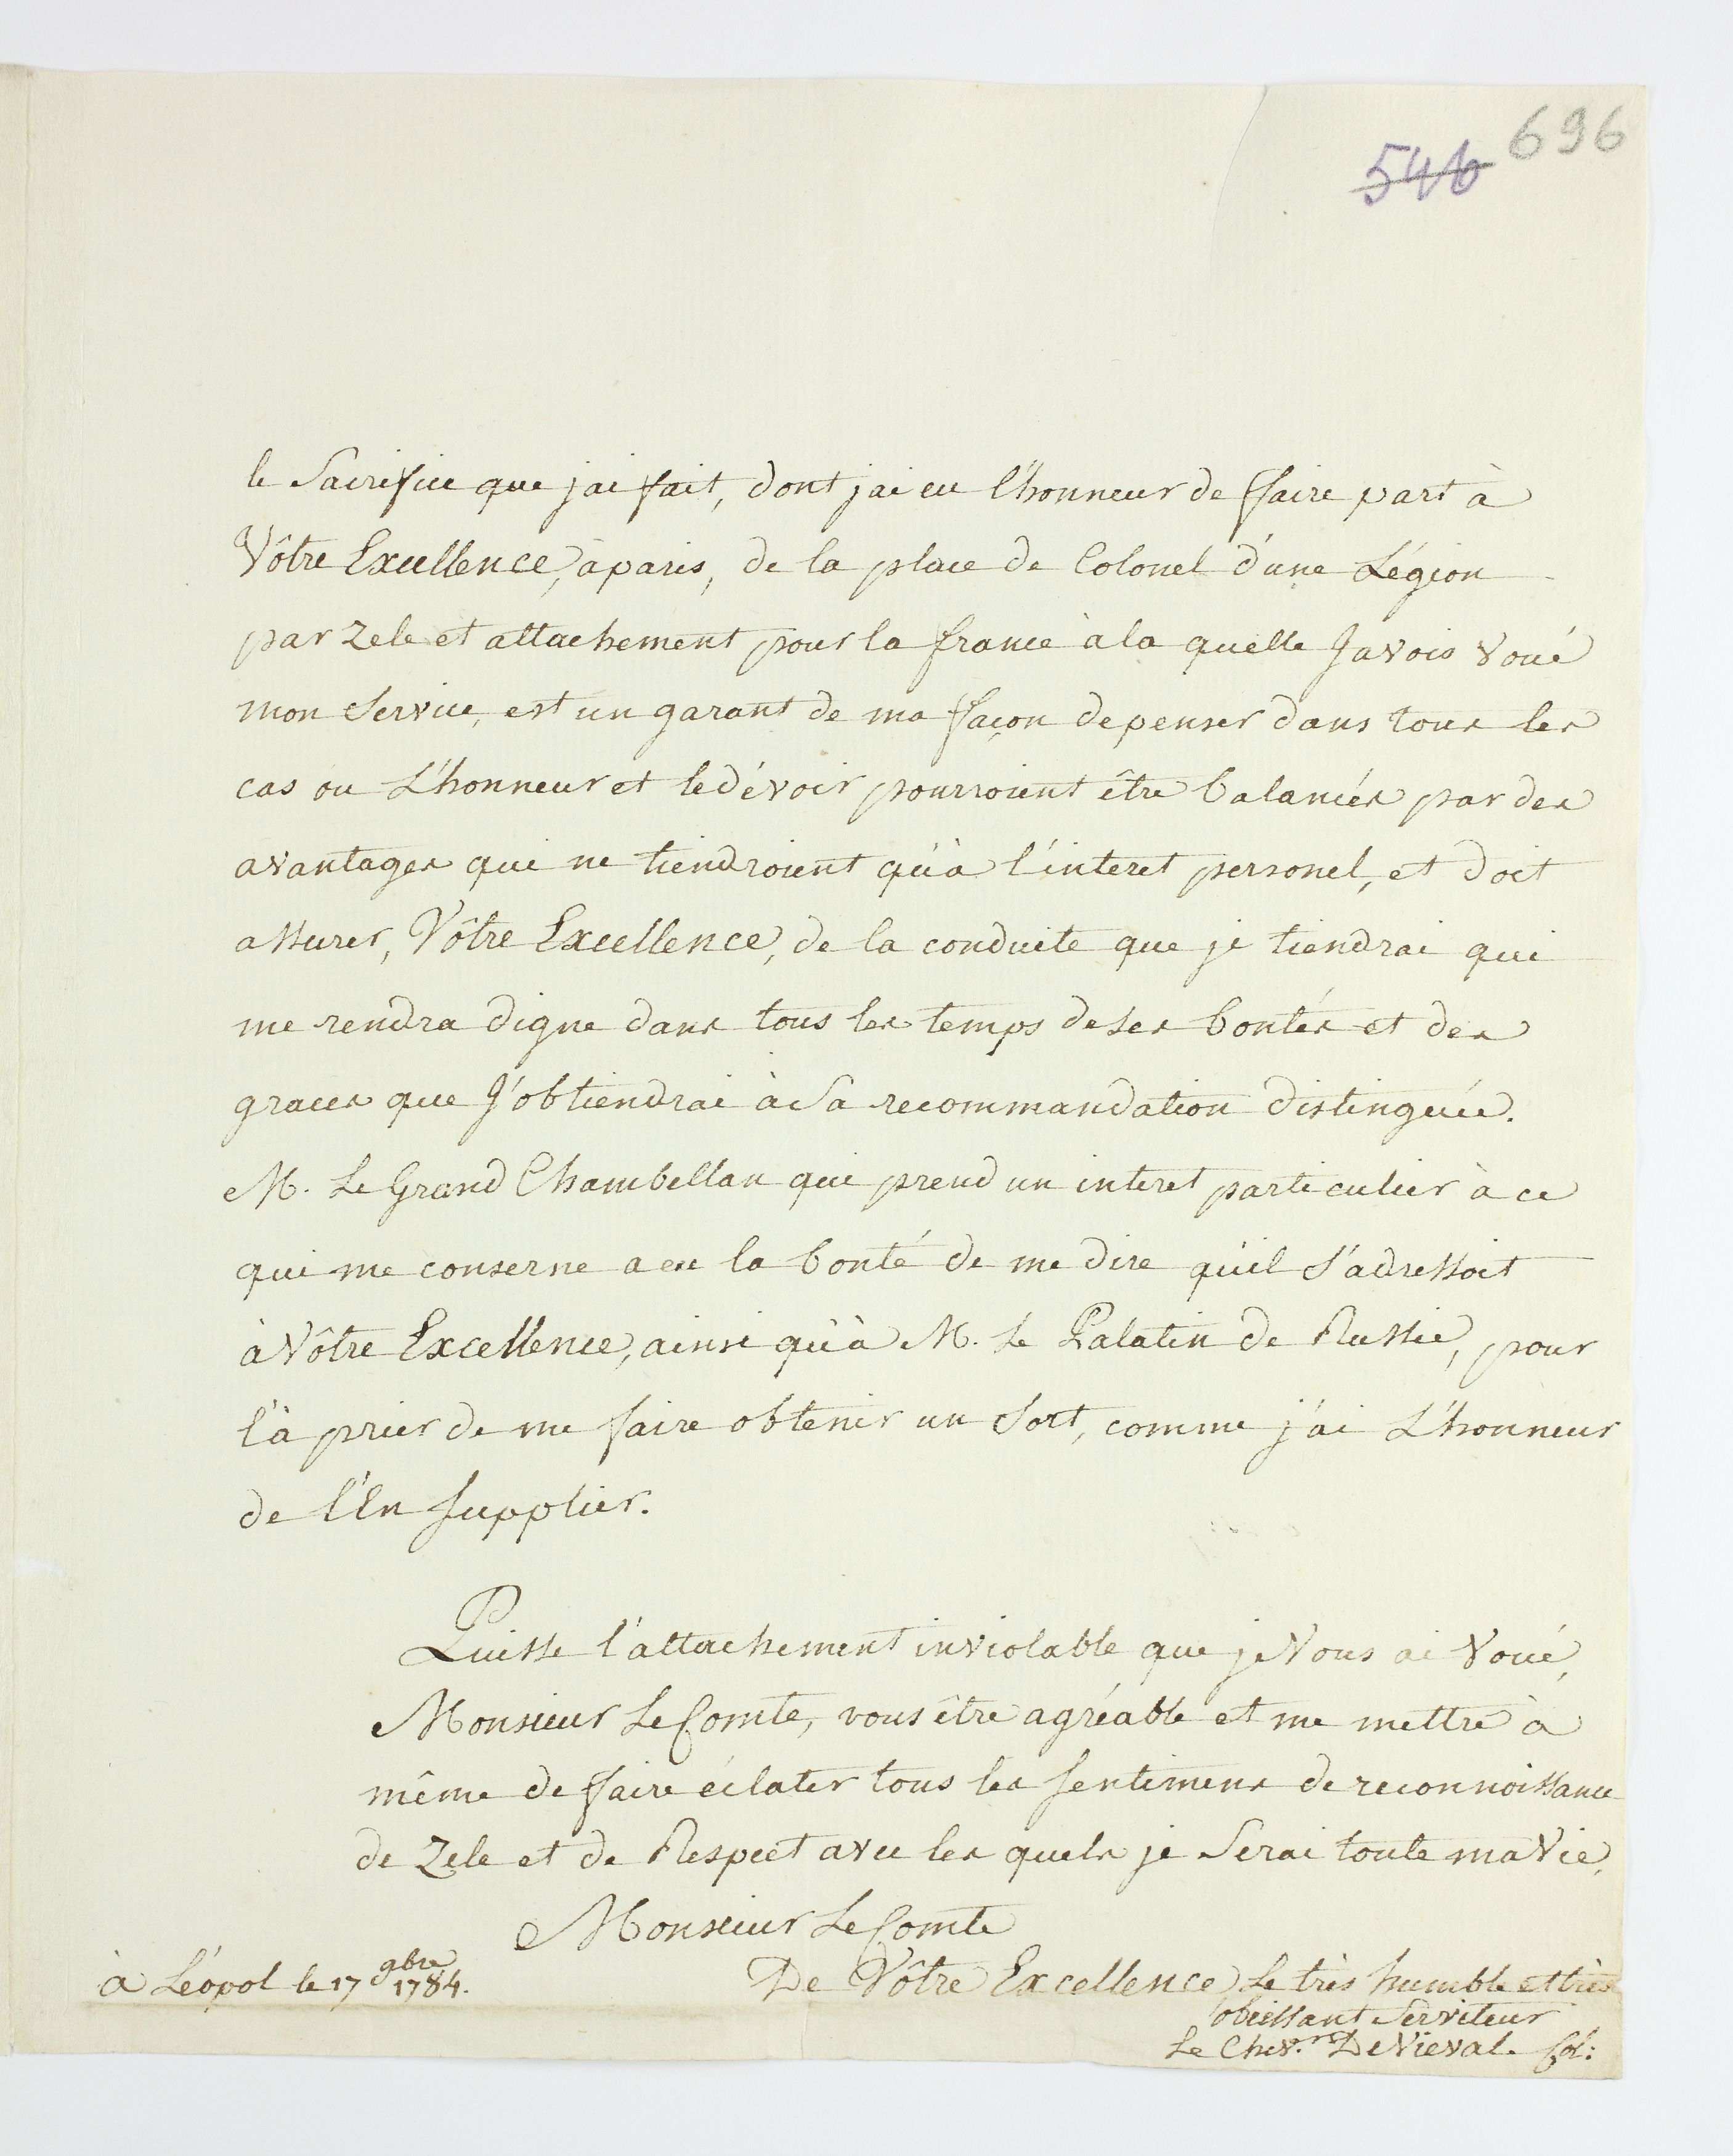 696
546
le Sacrifice que jai fait, dont jai eu l'honneur de ffaire part à
Vôtre Excellence, àparis, de la place de Colonel d'une Légion
par zele et attachement pour la france àla quelle Javois voué
mon Service, est un garant de ma ffaçon depenser dans tous les
cas ou L'honneur et ledévoir pourroient être balancés par des
avantages qui ne tiendroient qu'à l'interet personel, et doit
assurer, Vôtre Excellence, de la conduite que je tiendrai qui
me rendra digne dans tous les temps deses bontés et des
graces que J'obtiendrai àSa recommandation distinguée.
M. Le Grand Chambellan qui prend un interet particulier à ce
qui me conserne a eu la bonté de me dire qu'il S'adressoit
àVôtre Excellence, ainsi qu'à M. Le Palatin de Russie, pour
l'à prier de me faire obtenir un Sort, comme j'ai L'honneur
de l'En Supplier.
Puisse l'attachement inviolable que je Vous ai Voué,
Monsieur Le Comte, vous être agréable et me mettre à
même de ffaire éclater tous les Sentimens de reconnoissance
de Zele et de Respect avec les quels je Serai toute maVie,
Monsieur Le Comte
De Vôtre Excellence Le très humble et très
obeissant Serviteur
Le Chev.er De Vieval. Col:
à Léopol le 17 9bre 1784.